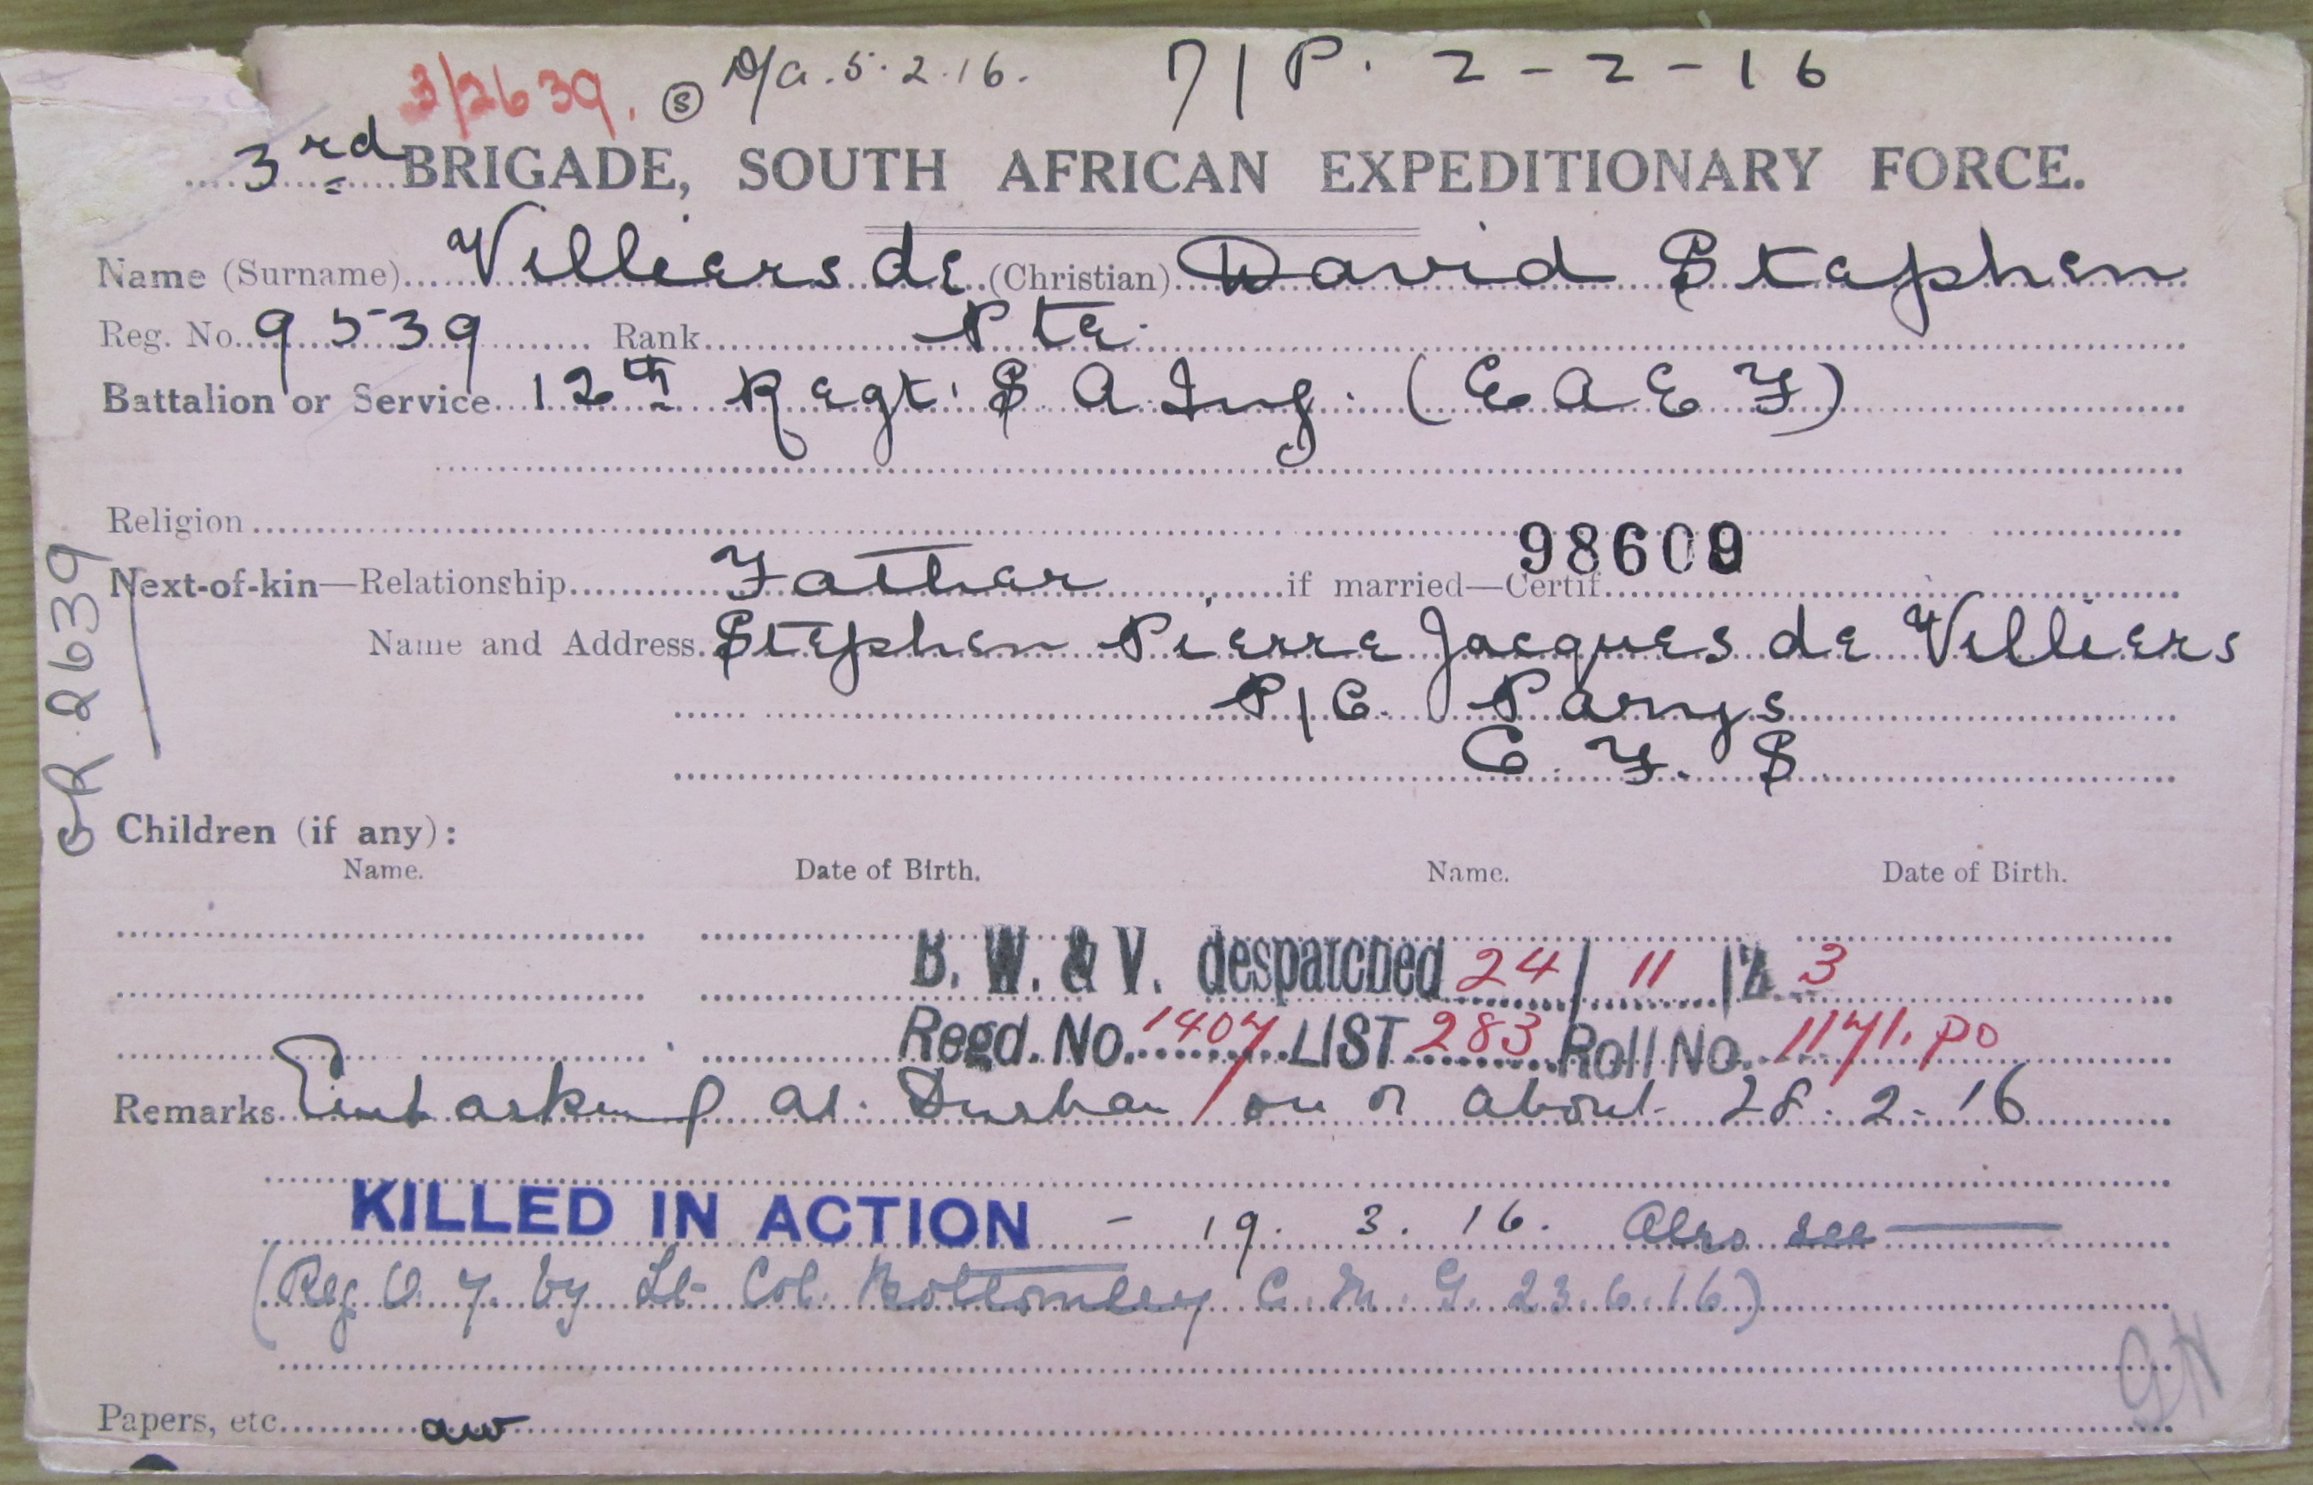 3/2639. (S) D/A. 5.2.16. 71 P. 2-2-16
3rd BRIGADE, SOUTH AFRICAN EXPEDITIONARY FORCE.
Name (Surname) Villiers de (Christian) David Stephen
Reg. No. 9539 Rank Pte.
Battalion or Service 12th Regt. S A Inf. (E A E F)
Religion
98609
Next-of-kin—Relationship Father if married—Certif
Name and Address. Stephen Pierre Jacques de Villiers
P/O. Parys
O. F. S.
R. 2639
Children (if any):
Name. Date of Birth. Name. Date of Birth.
B. W. & V. despatched 24/11/23
Regd. No. 1407 LIST 283 Roll No. 1171. PO
Remarks Embarking at Durban on or about 28.2.16
KILLED IN ACTION - 19. 3. 16. Also see
(Reg. by Lt Col. Bottomley C. M. G. 23.6.16)
GN
Papers, etc. aw